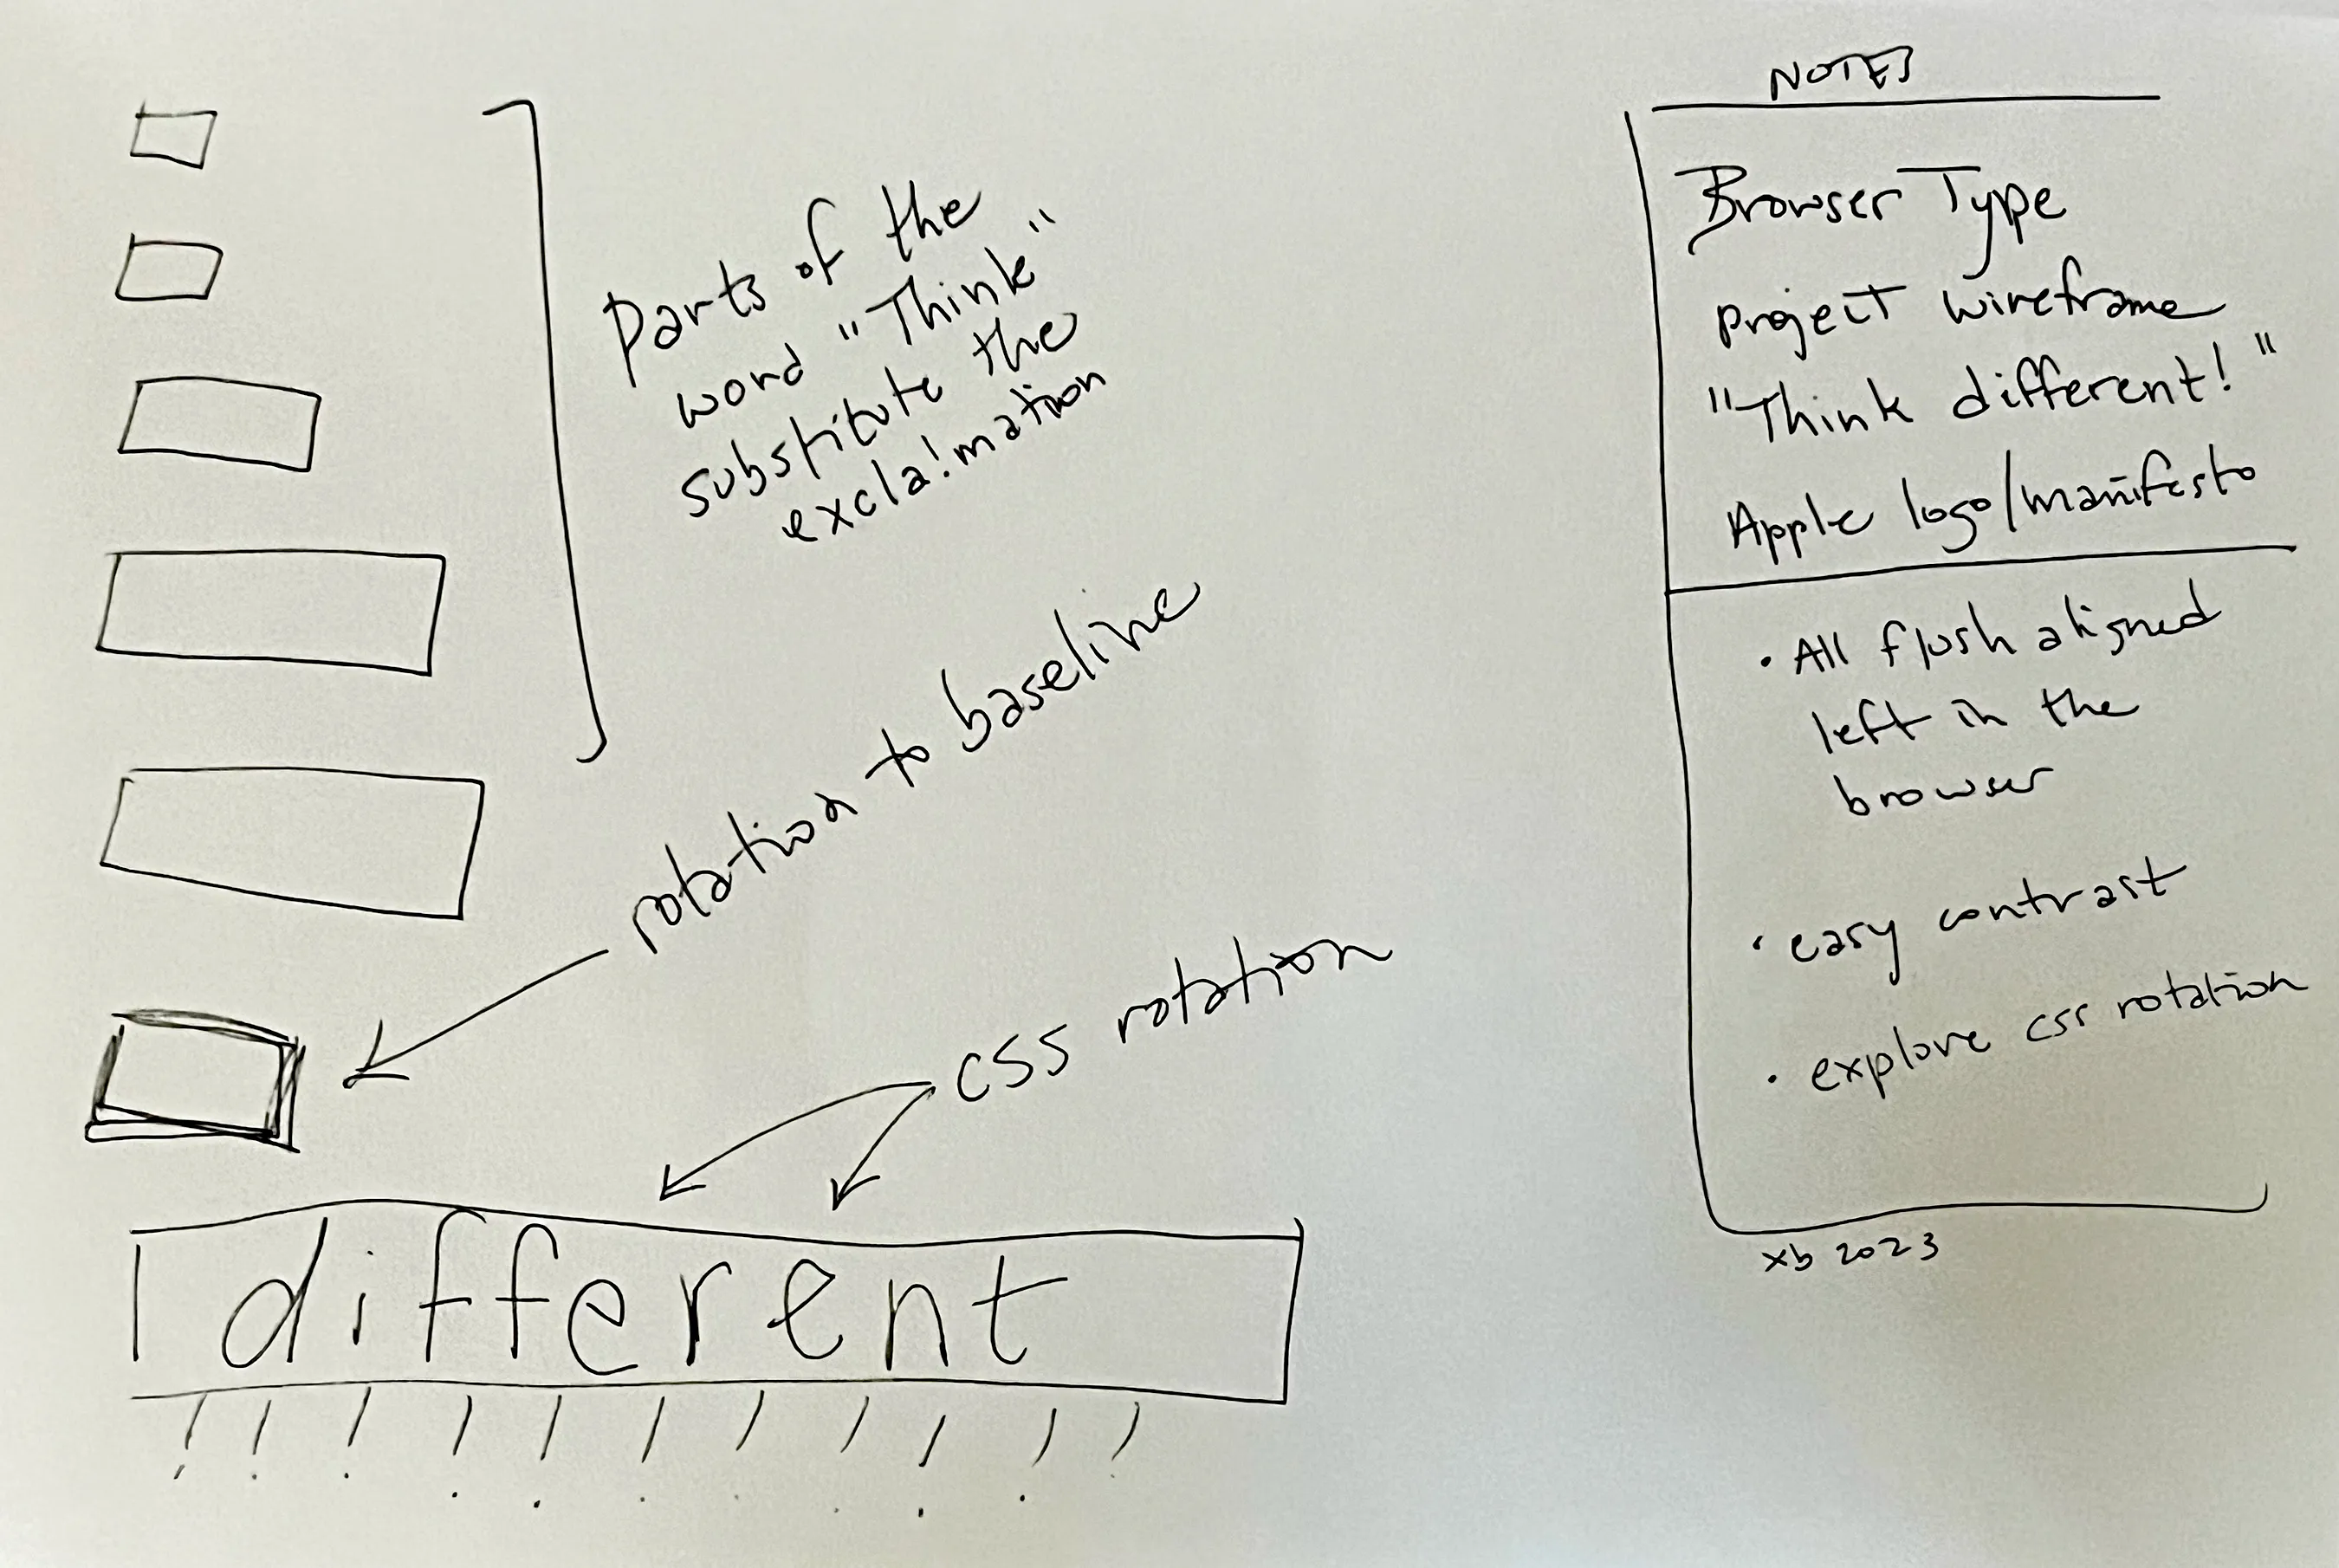 Parts of the
word "Think"
substitute the
excla!mation
rotation to baseline
CSS rotation
different
! ! ! ! ! ! ! ! ! ! !
NOTES
Browser Type
project wireframe
"Think different!"
Apple logo/manifesto
• All flush aligned
left in the
browser
• easy contrast
• explore css rotation
xb 2023